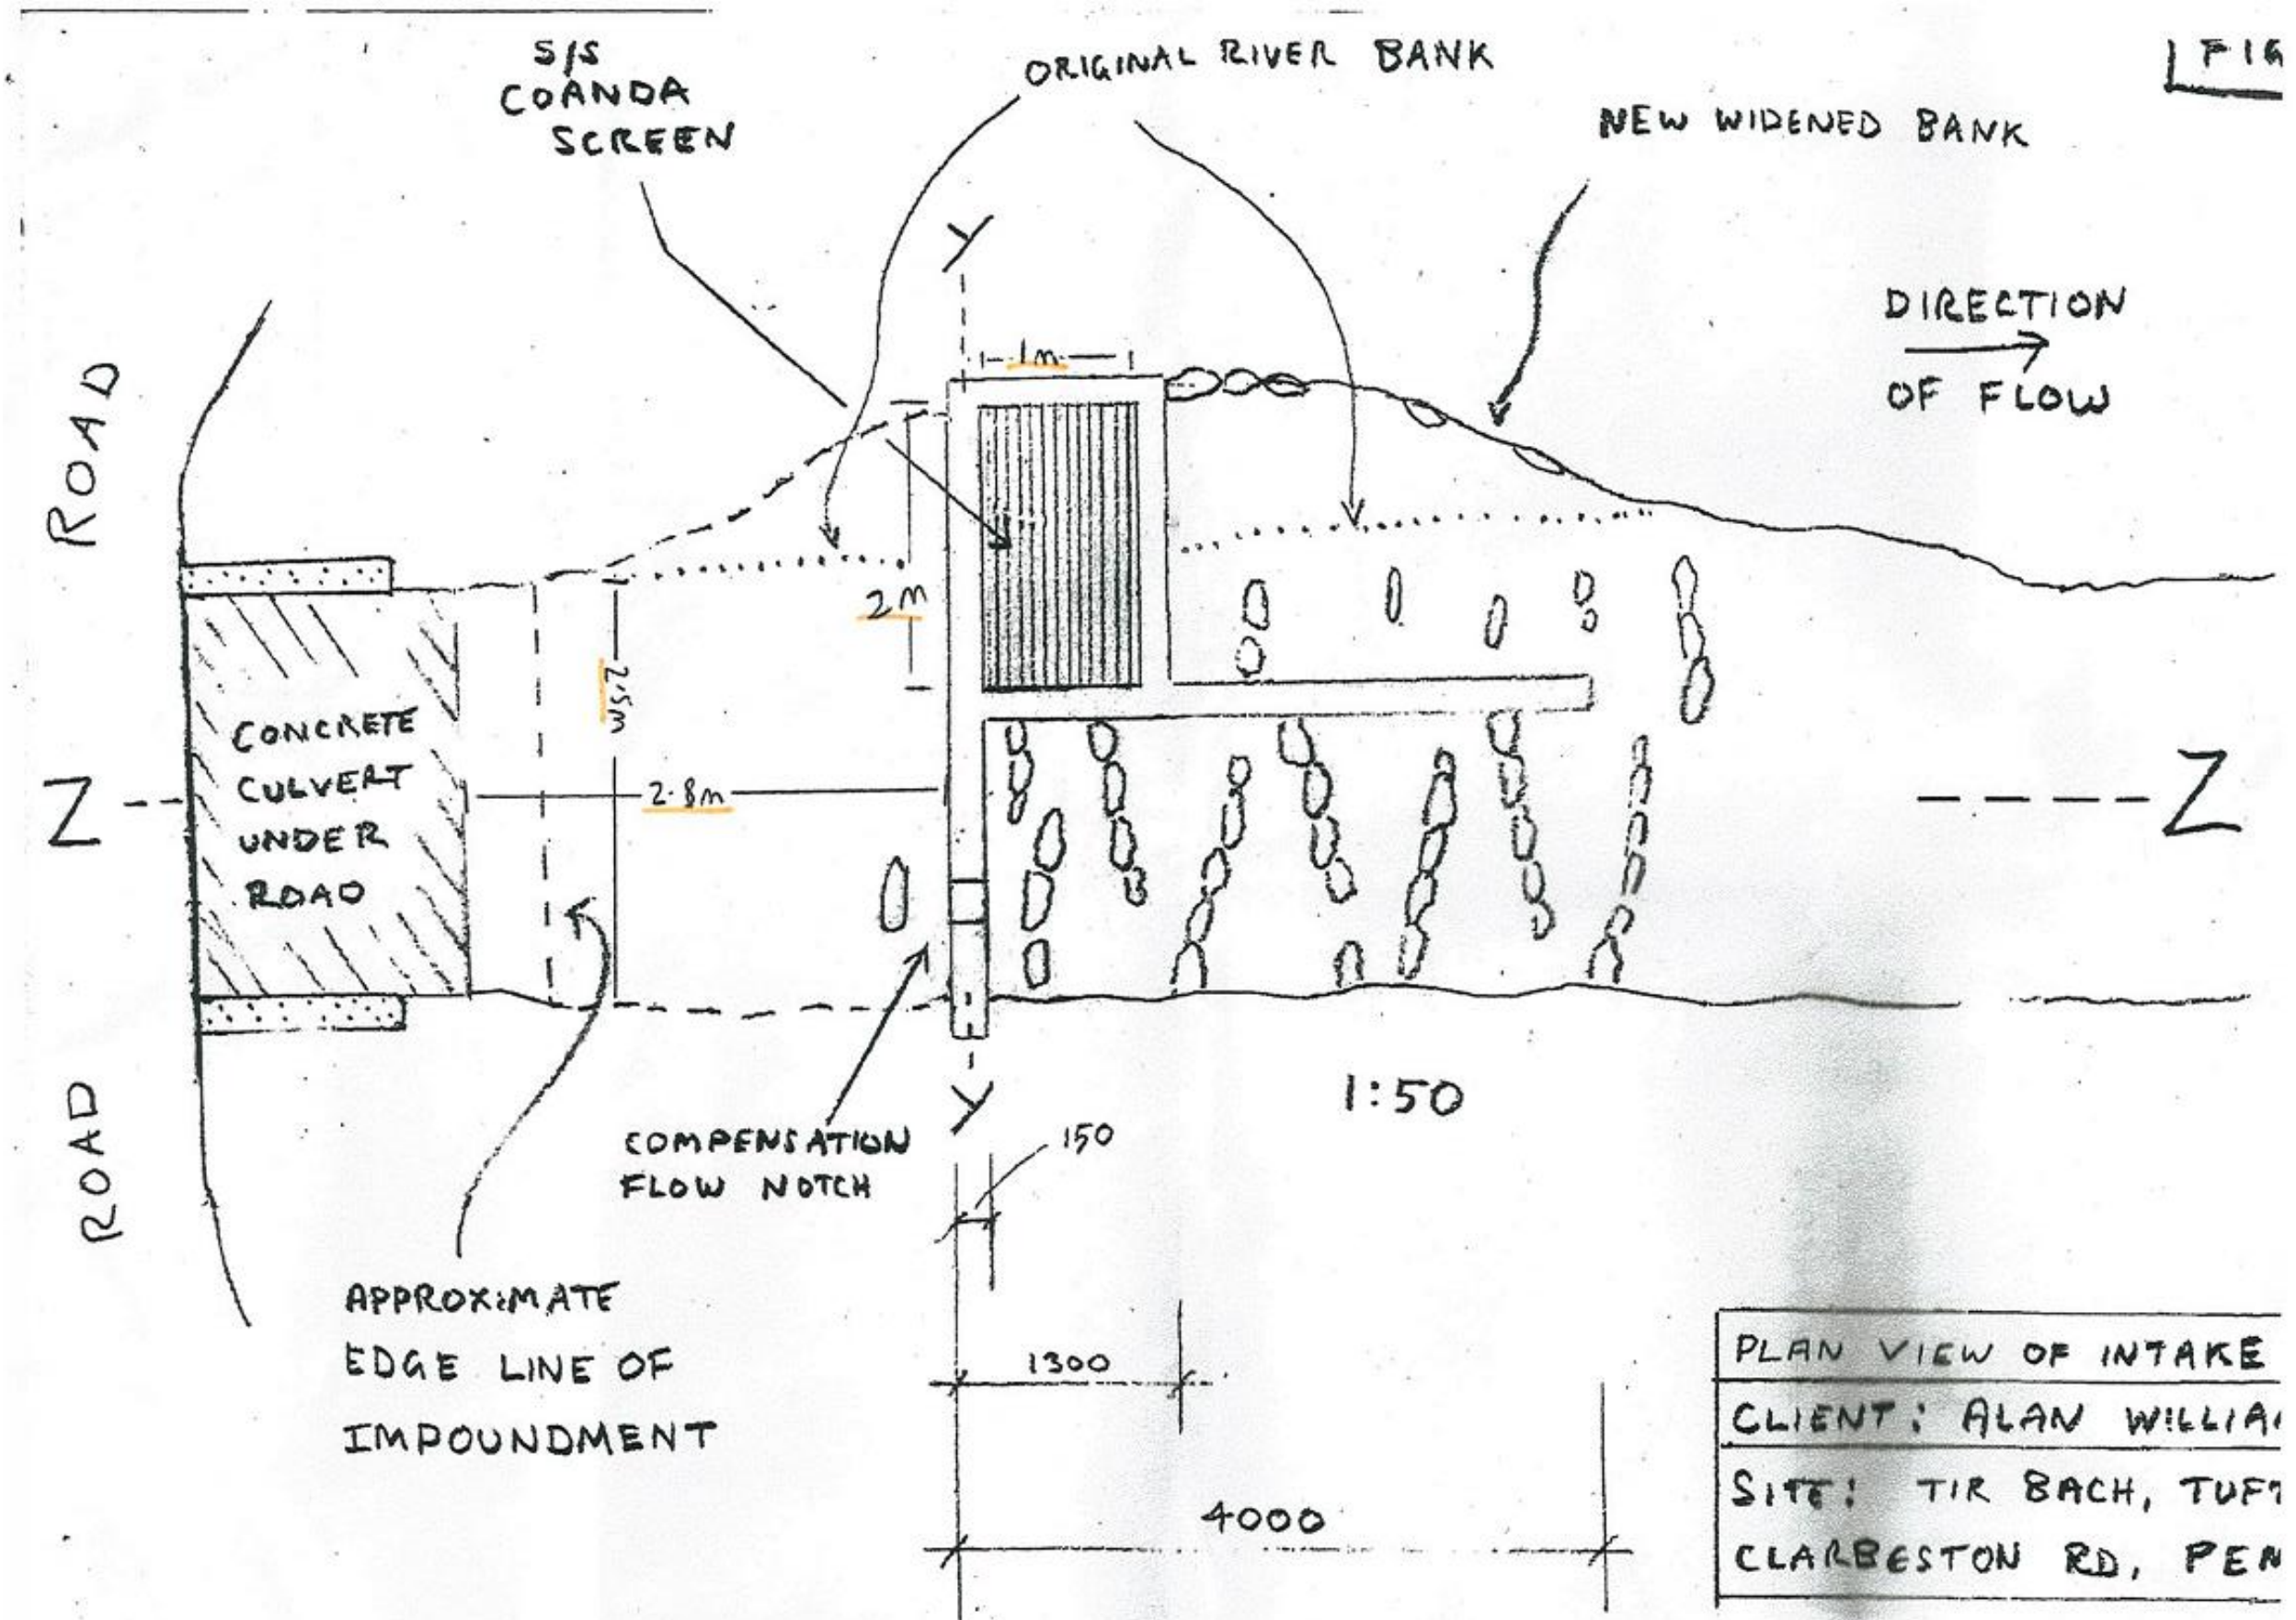 S/S
COANDA
SCREEN
ORIGINAL RIVER BANK
NEW WIDENED BANK
FIG
DIRECTION
OF FLOW
Y
1m
ROAD
2m
2.5m
CONCRETE
CULVERT
UNDER
ROAD
Z
2.8m
Z
ROAD
COMPENSATION
FLOW NOTCH
Y
1:50
150
APPROXIMATE
EDGE LINE OF
IMPOUNDMENT
1300
4000
PLAN VIEW OF INTAKE
CLIENT: ALAN WILLIA
SITE: TIR BACH, TUF
CLARBESTON RD, PEM